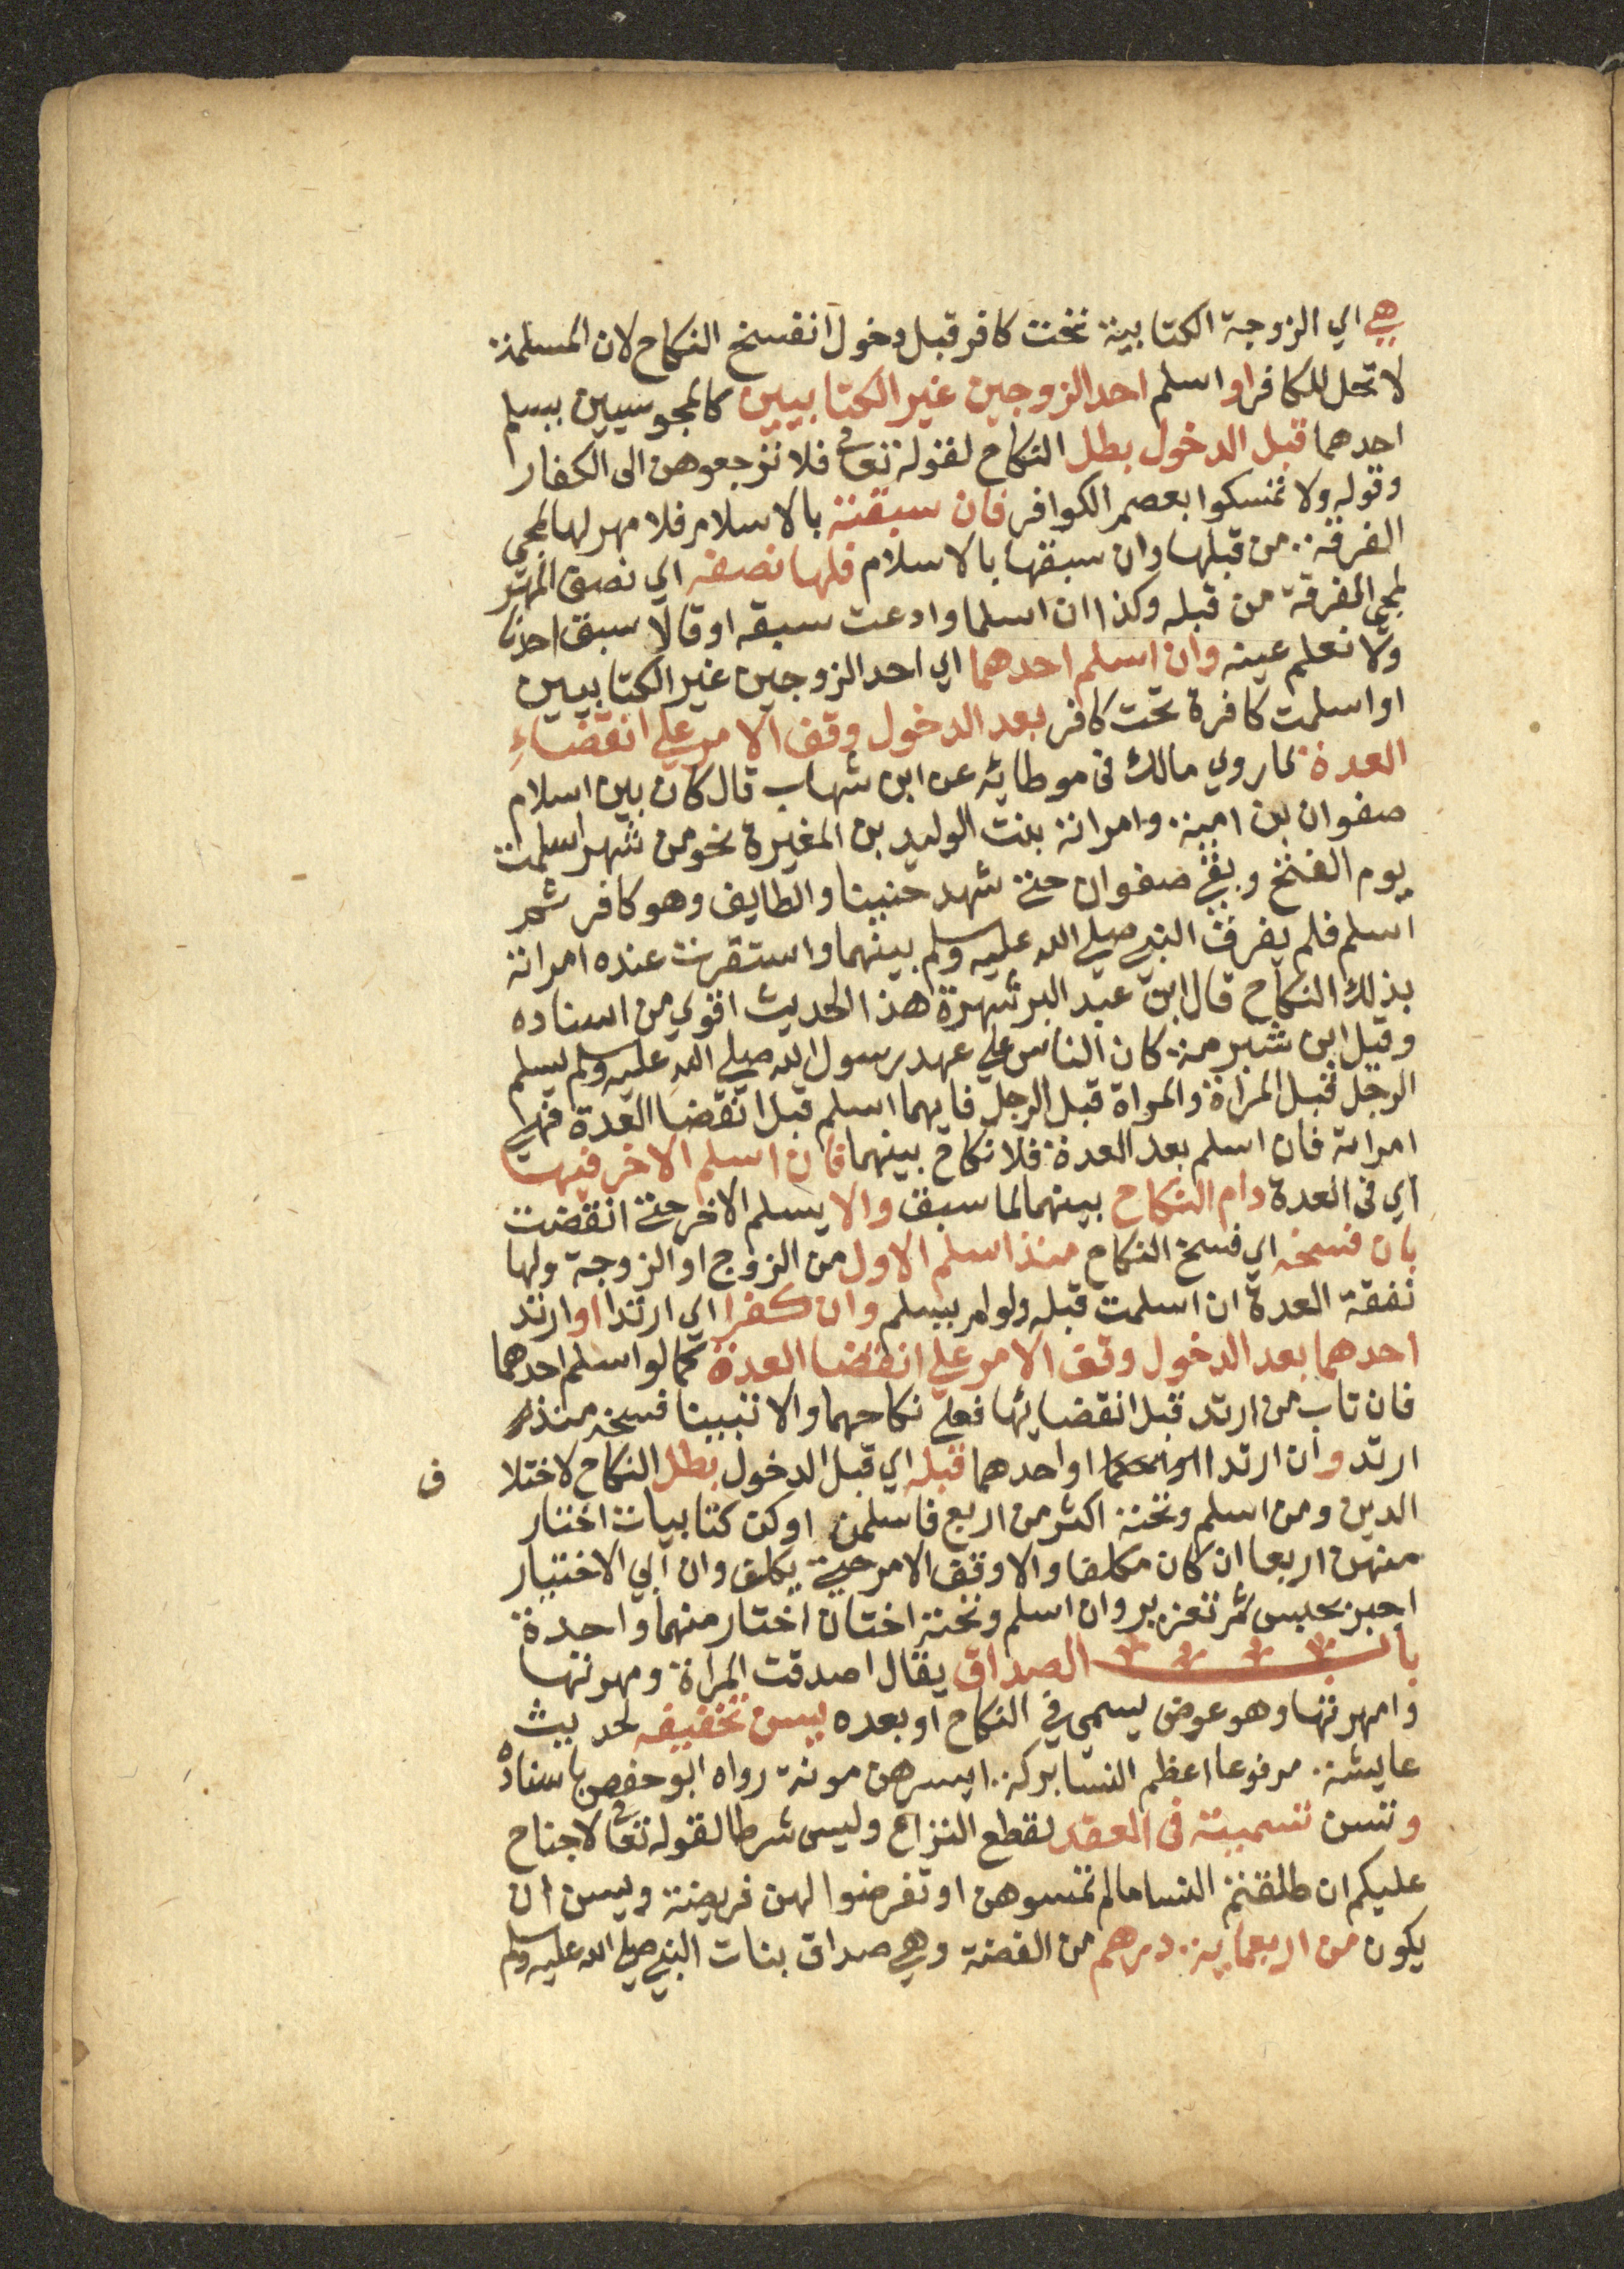 هي اي الزوجة الكتابية تحت كافر قبل دخول انفسخ النكاح لان المسلمة
لا تحل للكافر او اسلم احد الزوجين غير الكتابيين كالمجوسيين يسلم
احدهما قبل الدخول بطل النكاح لقوله تعالى فلا ترجعوهن الى الكفار
وقوله ولا تمسكوا بعصم الكوافر فان سبقته بالاسلام فلا مهر لها لمجي
الفرقة من قبلها وان سبقها بالاسلام فلها نصفه اي نصف المهر
لمجي الفرقة من قبله وكذا ان اسلما وادعت سبقه او قالا سبق احدنا
ولا نعلم عينه وان اسلم احدهما اي احد الزوجين غير الكتابيين
او اسلمت كافرة تحت كافر بعد الدخول وقف الامر على انقضاء
العدة لما روي مالك في موطايه عن ابن شهاب قال كان بين اسلام
صفوان بن امية وامراته بنت الوليد بن المغيرة نحو من شهر اسلمت
يوم الفتح وبقي صفوان حتى شهد حنينا والطايف وهو كافر ثم
اسلم فلم يفرق النبي صلى الله عليه وسلم بينهما واستقرت عنده امراته
بذلك النكاح قال ابن عبد البر شهرة هذا الحديث اقوي من اسناده
وقيل ابن شبرمة كان الناس على عهد رسول الله صلى الله عليه وسلم يسلم
الرجل قبل المراة والمراة قبل الرجل فايهما اسلم قبل انقضا العدة فهي
امراته فان اسلم بعد العدة فلا نكاح بينهما فان اسلم الاخر فيها
اي في العدة دام النكاح بينهما لما سبق والا يسلم الاخر حتى انقضت
بان فسخه اي فسخ النكاح منذ اسلم الاول من الزوج او الزوجة ولها
نفقة العدة ان اسلمت قبله ولو لم يسلم وان كفرا اي ارتدا او ارتد
احدهما بعد الدخول وقف الامر على انقضا العدة كما لو اسلم احدهما
فان تاب من ارتد قبل انقضايها فعلى نكاحهما والا تبينا فسخه منذ
ارتد وان ارتدا او احدهما قبله اي قبل الدخول بطل النكاح لاختلا
ف
الدين ومن اسلم وتحته اكثر من اربع فاسلمن او كن كتابيات اختار
منهن اربعا ان كان مكلفا والا وقف الامر حتى يكلف وان ابي الاختيار
اجبر بحبس ثم تعزير وان اسلم وتحته اختان اختار منهما واحدة
باب الصداق يقال اصدقت المراة ومهرتها
وامهرتها وهو عوض يسمي في النكاح او بعده يسن تخفيفه لحديث
عايشة مرفوعا اعظم النسا بركة ايسرهن مونة رواه ابو حفص باسناده
وتسن تسميته في العقد لقطع النزاع وليس شرطا لقوله تعالى لا جناح
عليكم ان طلقتم النسا ما لم تمسوهن او تفرضوا لهن فريضة ويسن ان
يكون من اربعماية درهم من الفضة وهي صداق بنات النبي صلى الله عليه وسلم